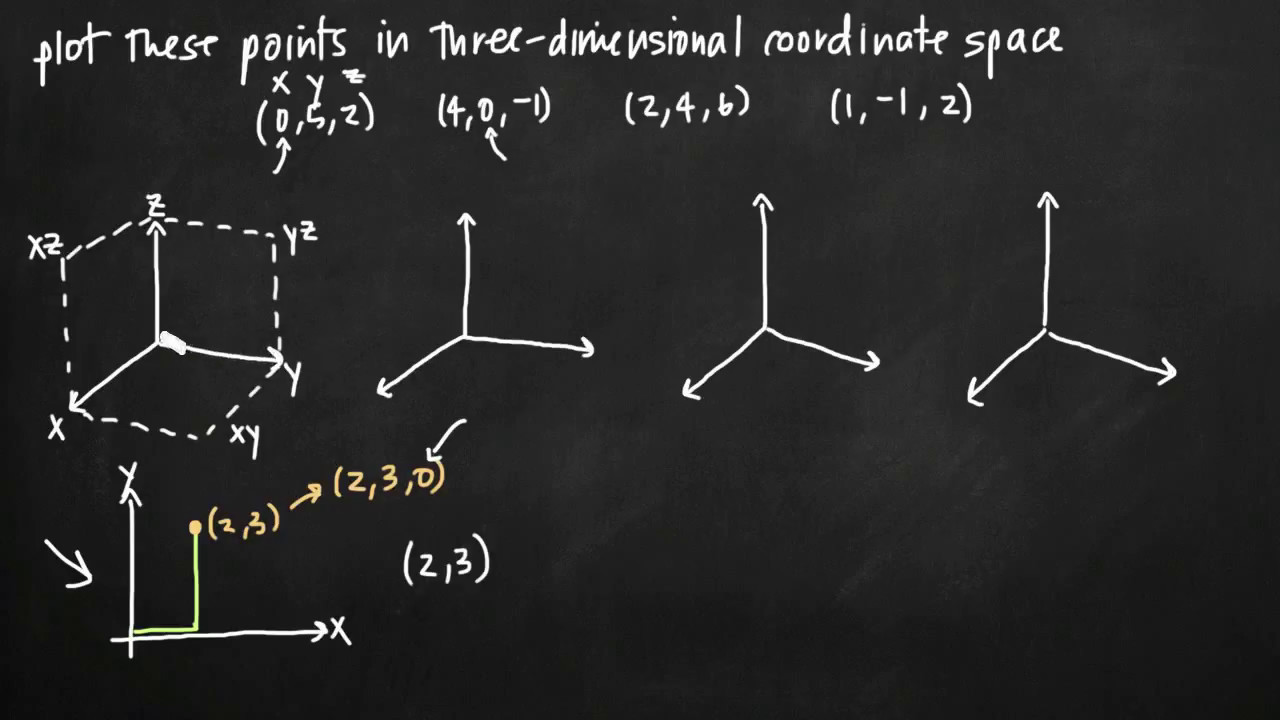 plot these points in three-dimensional coordinate space
x y z
(0,5,2) (4,0,-1) (2,4,6) (1,-1,2)
z
xz
yz
y
x
xy
y
(2,3,0)
(2,3)
(2,3)
x